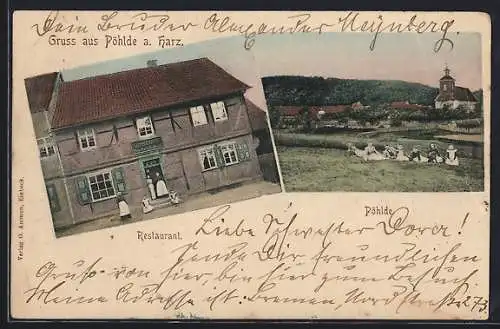 Dein Bruder Alexander Meynberg.
Gruss aus Pöhlde a. Harz.
Restaurant.
Pöhlde
Verlag G. Ammon, Einbeck.
Liebe Schwester Dora!
Sende Dir freundlichen
Gruß von hier, bin hier zum Besuch
Meine Adresse ist: Bremen, Nordstraße 273.